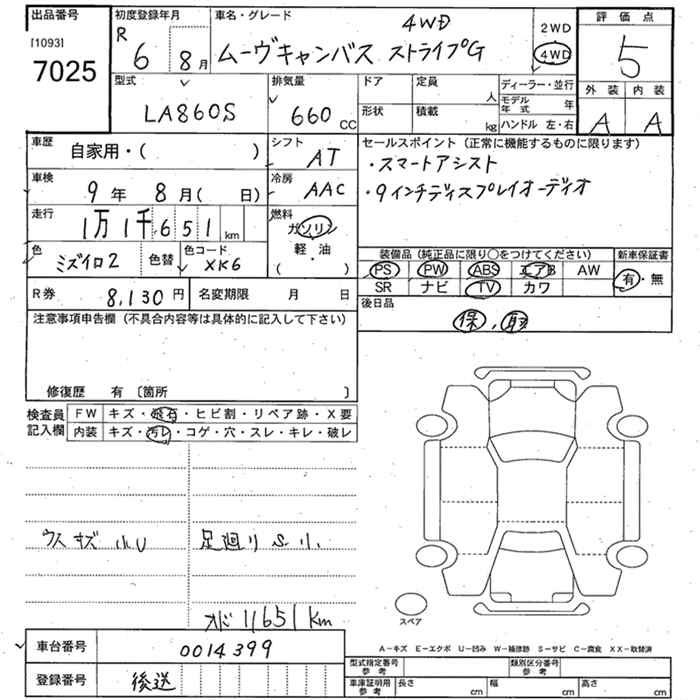 出品番号
[1093]
7025
初度登録年月
R 6 8月
車名・グレード
4WD
ムーヴキャンバス ストライプG
2WD
4WD
評価点
5
外装 内装
A A
型式
LA860S
排気量
660 CC
ドア 定員 人
形状 積載 kg
ディーラー・並行
モデル年式 年
ハンドル 左・右
車歴
自家用・( )
シフト
AT
車検
9年 8月( 日)
冷房
AAC
走行
1万1千651 km
燃料
ガソリン
軽・油
( )
色
ミズイロ2
色替
色コード
XK6
R券
8,130円
名変期限 月 日
セールスポイント (正常に機能するものに限ります)
・スマートアシスト
・9インチディスプレイオーディオ
装備品 (純正品に限り○をつけてください)
PS PW ABS エアB AW
SR ナビ TV カワ
新車保証書
有・無
後日品
保、取
注意事項申告欄 (不具合内容等は具体的に記入して下さい)
修復歴 有 〔箇所 〕
検査員記入欄
FW キズ・飛石・ヒビ割・リペア跡・X要
内装 キズ・汚レ・コゲ・穴・スレ・キレ・破レ
ウスキズ 小U
足廻り S小
オド 11651km
スペア
A−キズ E−エクボ U−凹み W−補修跡 S−サビ C−腐食 XX−取替済
車台番号
0014399
登録番号
後送
型式指定番号 参考
類別区分番号 参考
車庫証明用 参考 長さ cm 幅 cm 高さ cm